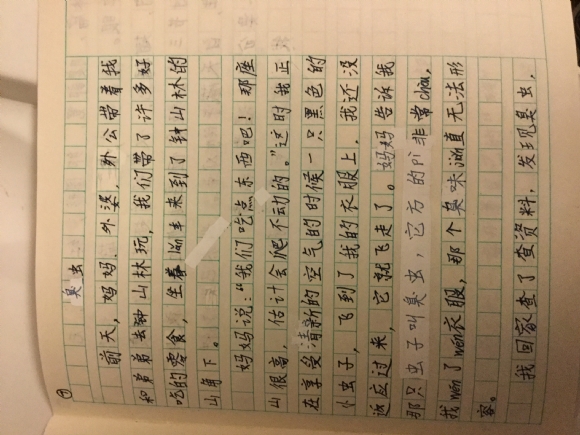 ①
臭虫
前天，妈妈、外婆、外公带着我
和弟弟去钟山林玩，我们带了许多好
吃的零食，坐着汽车来到了钟山林的
山角下。
妈妈说：“我们吃点东西吧！那座
山很高，估计会爬不动的。”这时我正
在享受清新的空气的时候一只黑色的
小虫子，飞到了我的衣服上，我还没
返应过来，它就飞走了。妈妈告诉我
那只虫子叫臭虫，它方的pi非常chou,
我wén了wén衣服，那个臭味简直无法形
容。
我回家查了查资料，发现臭虫，